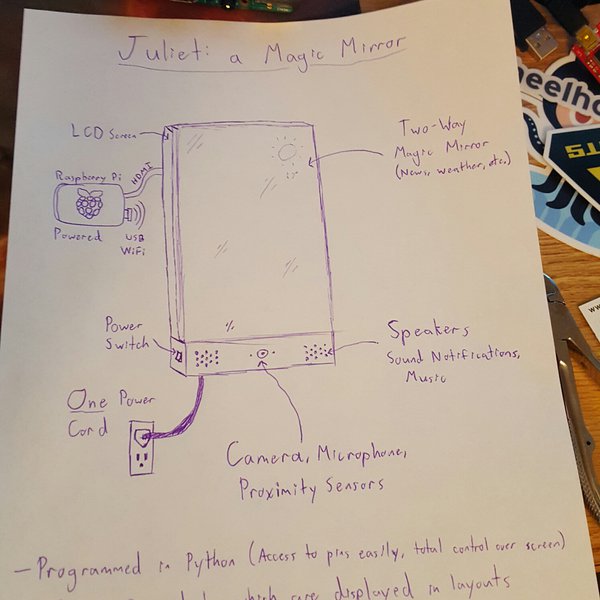 Juliet: a Magic Mirror
LCD Screen
HDMI
Raspberry Pi
Powered
USB
WiFi
Two-Way
Magic Mirror
(News, weather, etc.)
Power
Switch
Speakers
Sound Notifications,
Music
One Power
Cord
Camera, Microphone,
Proximity Sensors
- Programmed in Python (Access to pins easily, total control over screen)
which are displayed in layouts
eelho
TS